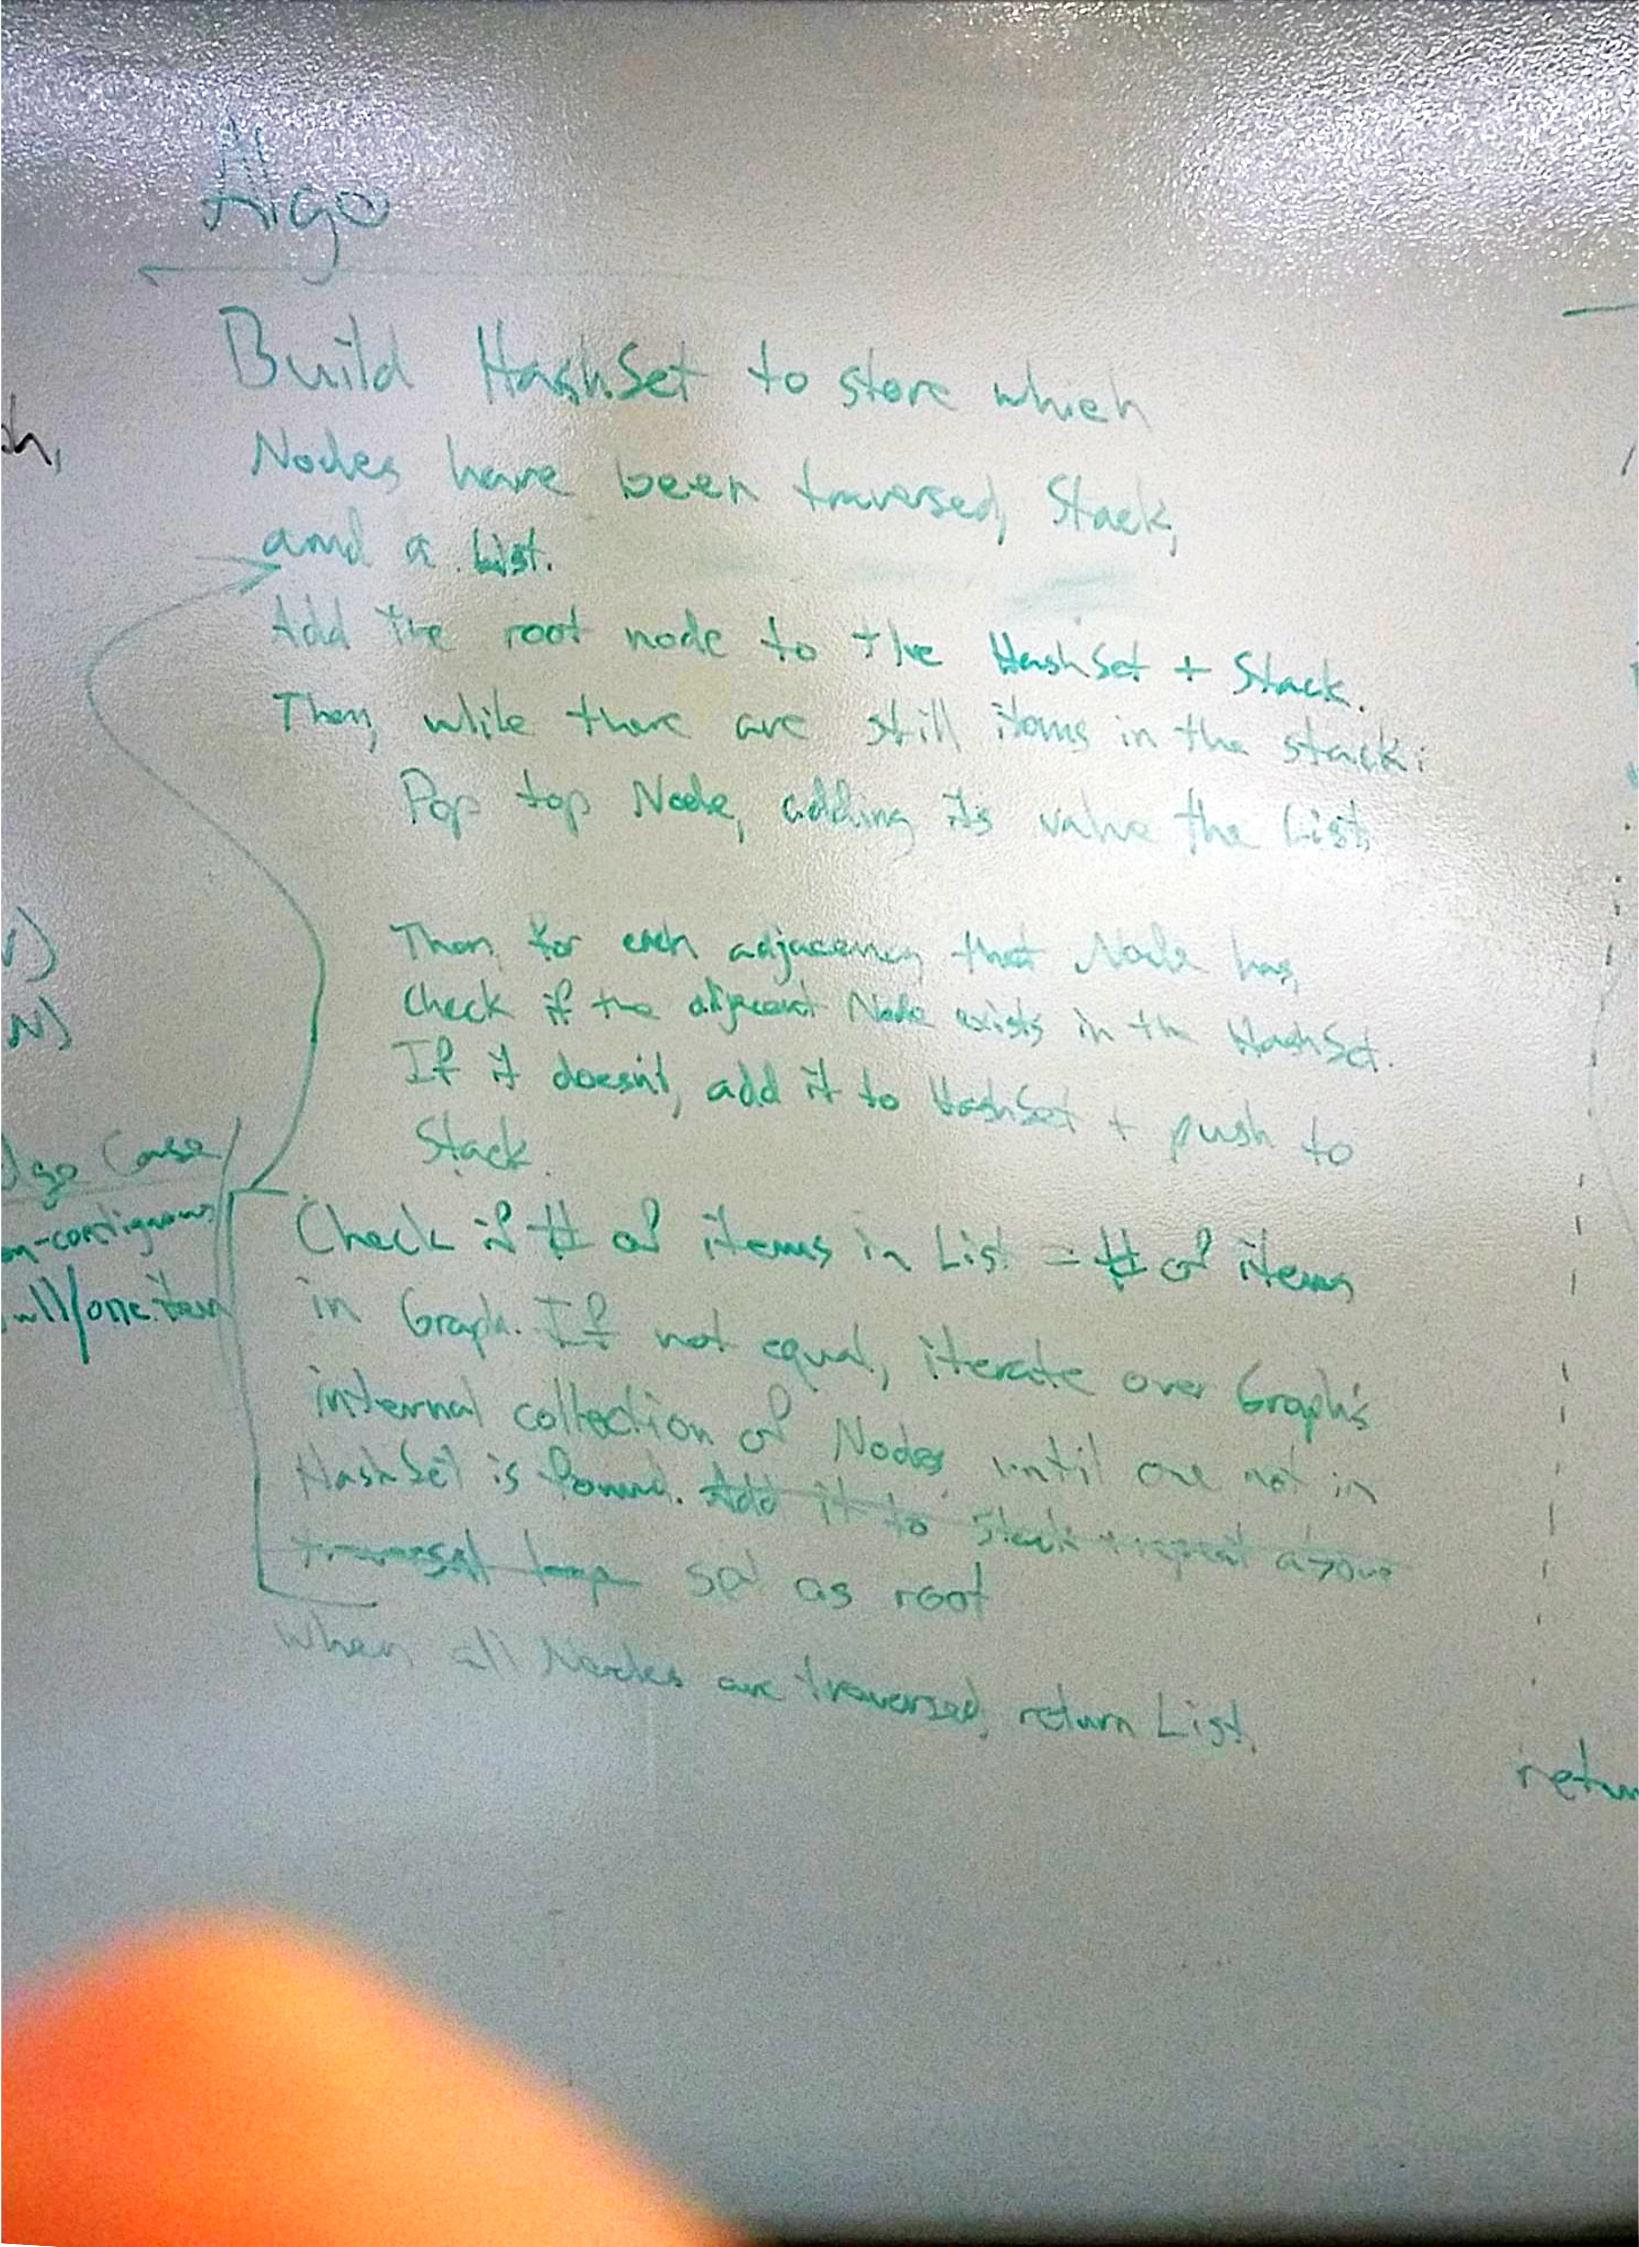 Algo
Build HashSet to store which
Nodes have been traversed, Stack,
and a List.
Add the root node to the HashSet + Stack.
Then, while there are still items in the stack:
Pop top Node, adding its value the List
Then, for each adjacency that Node has,
Check if the adjacent Node exists in the HashSet.
If it doesn't, add it to HashSet + push to
Stack.
Check if # of items in List = # of items
in Graph. If not equal, iterate over Graph's
internal collection of Nodes until one not in
HashSet is found. Add it to Stack + repeat above
traversal loop set as root
When all Nodes are traversed, return List.
h,
)
N)
Case
on-contiguous
ull/one item
retu